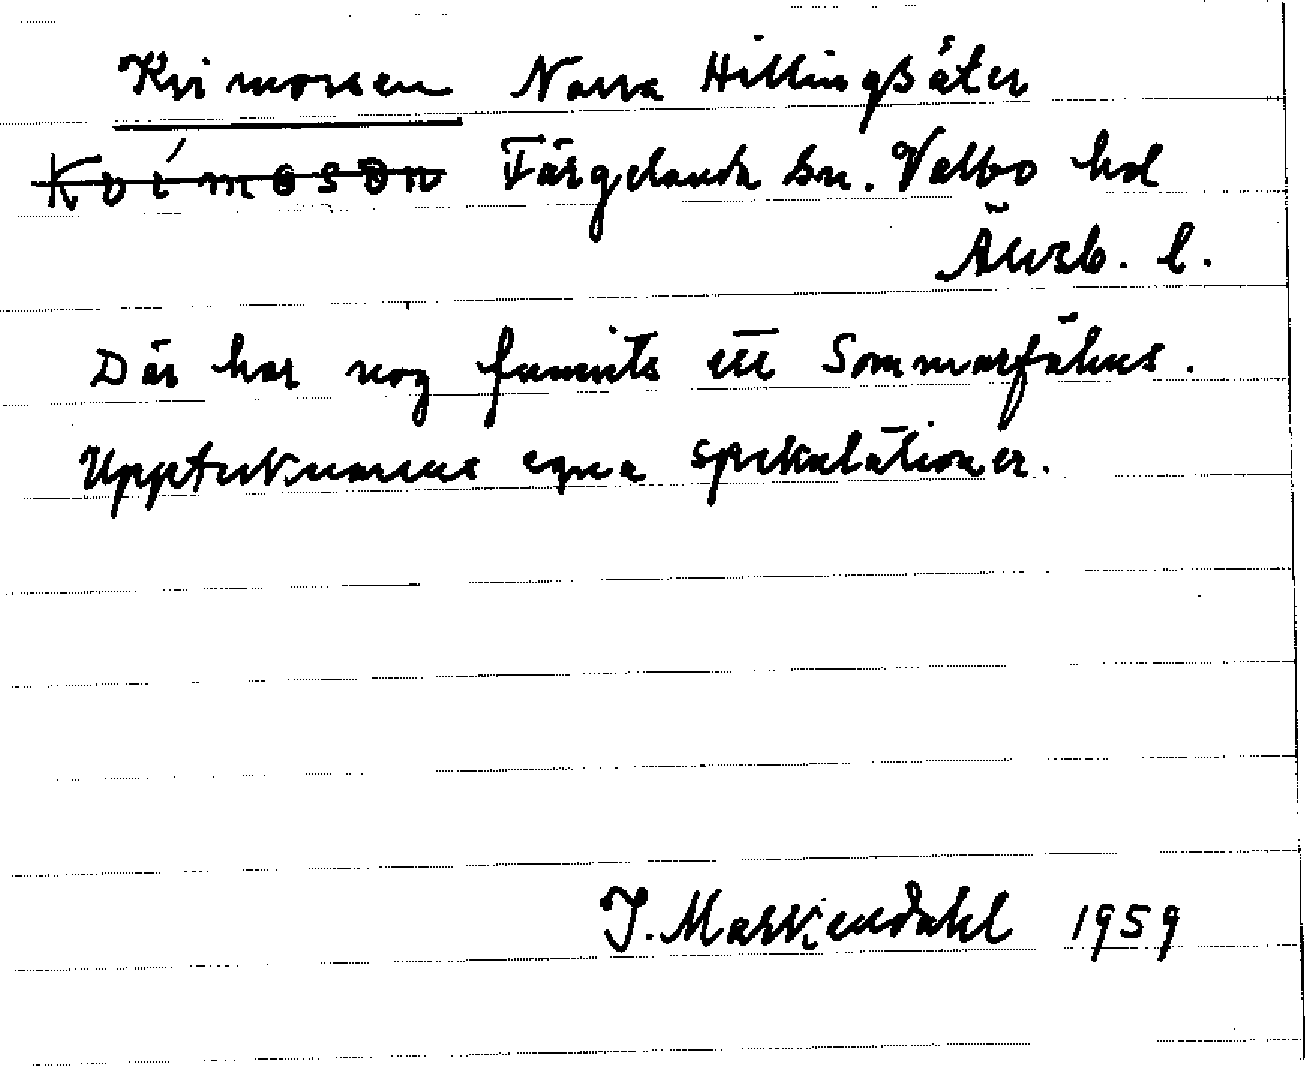 Kvimossen Norra Hillingsäter
Kvimosən Färgelanda sn. Valbo hd
Älvsb. l.
Där har nog funnits ett Sommarfähus.
Upptecknarens egna spekulationer.
J. Markendahl 1959